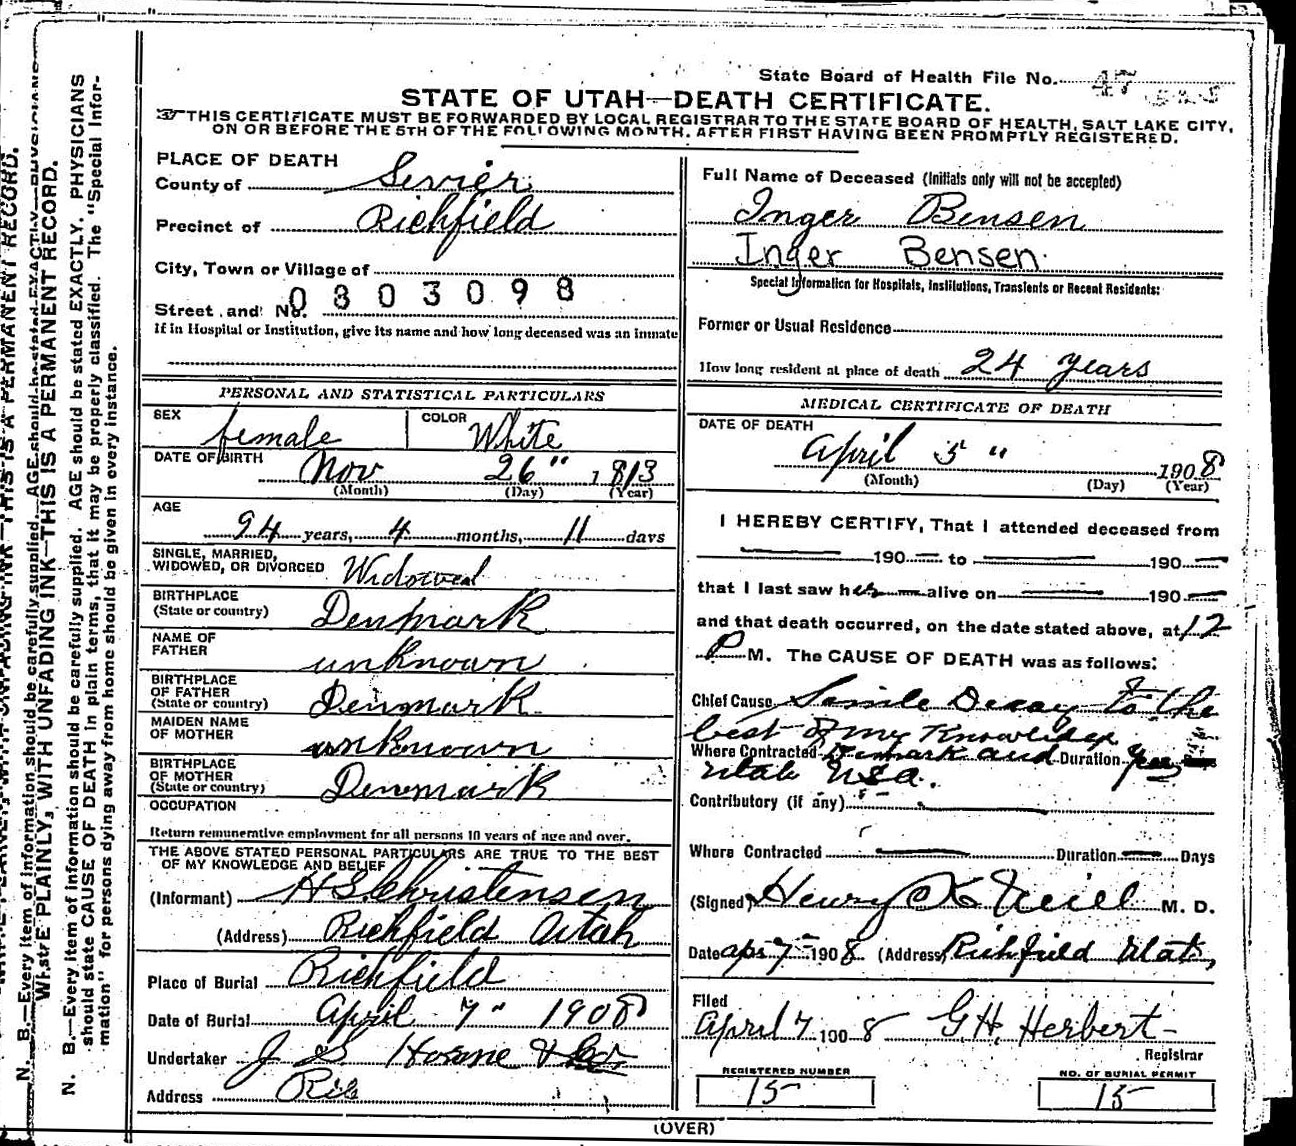 State Board of Health File No. 47
STATE OF UTAH—DEATH CERTIFICATE.
THIS CERTIFICATE MUST BE FORWARDED BY LOCAL REGISTRAR TO THE STATE BOARD OF HEALTH, SALT LAKE CITY,
ON OR BEFORE THE 5TH OF THE FOLLOWING MONTH, AFTER FIRST HAVING BEEN PROMPTLY REGISTERED.
PLACE OF DEATH
County of Sevier
Precinct of Richfield
City, Town or Village of
Street and No. 0803098
If in Hospital or Institution, give its name and how long deceased was an inmate
PERSONAL AND STATISTICAL PARTICULARS
SEX female COLOR White
DATE OF BIRTH Nov 26" 1813
(Month) (Day) (Year)
AGE
94 years, 4 months, 11 days
SINGLE, MARRIED,
WIDOWED, OR DIVORCED Widowed
BIRTHPLACE
(State or country) Denmark
NAME OF
FATHER unknown
BIRTHPLACE
OF FATHER
(State or country) Denmark
MAIDEN NAME
OF MOTHER unknown
BIRTHPLACE
OF MOTHER
(State or country) Denmark
OCCUPATION
Return remunerative employment for all persons 10 years of age and over.
THE ABOVE STATED PERSONAL PARTICULARS ARE TRUE TO THE BEST
OF MY KNOWLEDGE AND BELIEF
(Informant) H S Christensen
(Address) Richfield Utah
Place of Burial Richfield
Date of Burial April 7" 1908
Undertaker J S Horne &
Address Rich
Full Name of Deceased (Initials only will not be accepted)
Inger Bensen
Inger Bensen.
Special Information for Hospitals, Institutions, Transients or Recent Residents:
Former or Usual Residence
How long resident at place of death 24 years
MEDICAL CERTIFICATE OF DEATH
DATE OF DEATH
April 5" 1908
(Month) (Day) (Year)
I HEREBY CERTIFY, That I attended deceased from
190 to 190
that I last saw her alive on 190
and that death occurred, on the date stated above, at 12
P M. The CAUSE OF DEATH was as follows:
Chief Cause Senile Decay to the
best of my Knowledge
Where Contracted Denmark and Duration yrs Days
Utah USA.
Contributory (if any)
Where Contracted Duration Days
(Signed) Henry K Neill M. D.
Date Apr 7 1908 (Address) Richfield Utah,
Filed
April 7 1908 G.H. Herbert
Registrar
REGISTERED NUMBER
15
NO. OF BURIAL PERMIT
15
(OVER)
WRITE PLAINLY, WITH UNFADING INK—THIS IS A PERMANENT RECORD.
N. B.—Every item of information should be carefully supplied. AGE should be stated EXACTLY. PHYSICIANS
should state CAUSE OF DEATH in plain terms, that it may be properly classified. The "Special Infor-
mation" for persons dying away from home should be given in every instance.